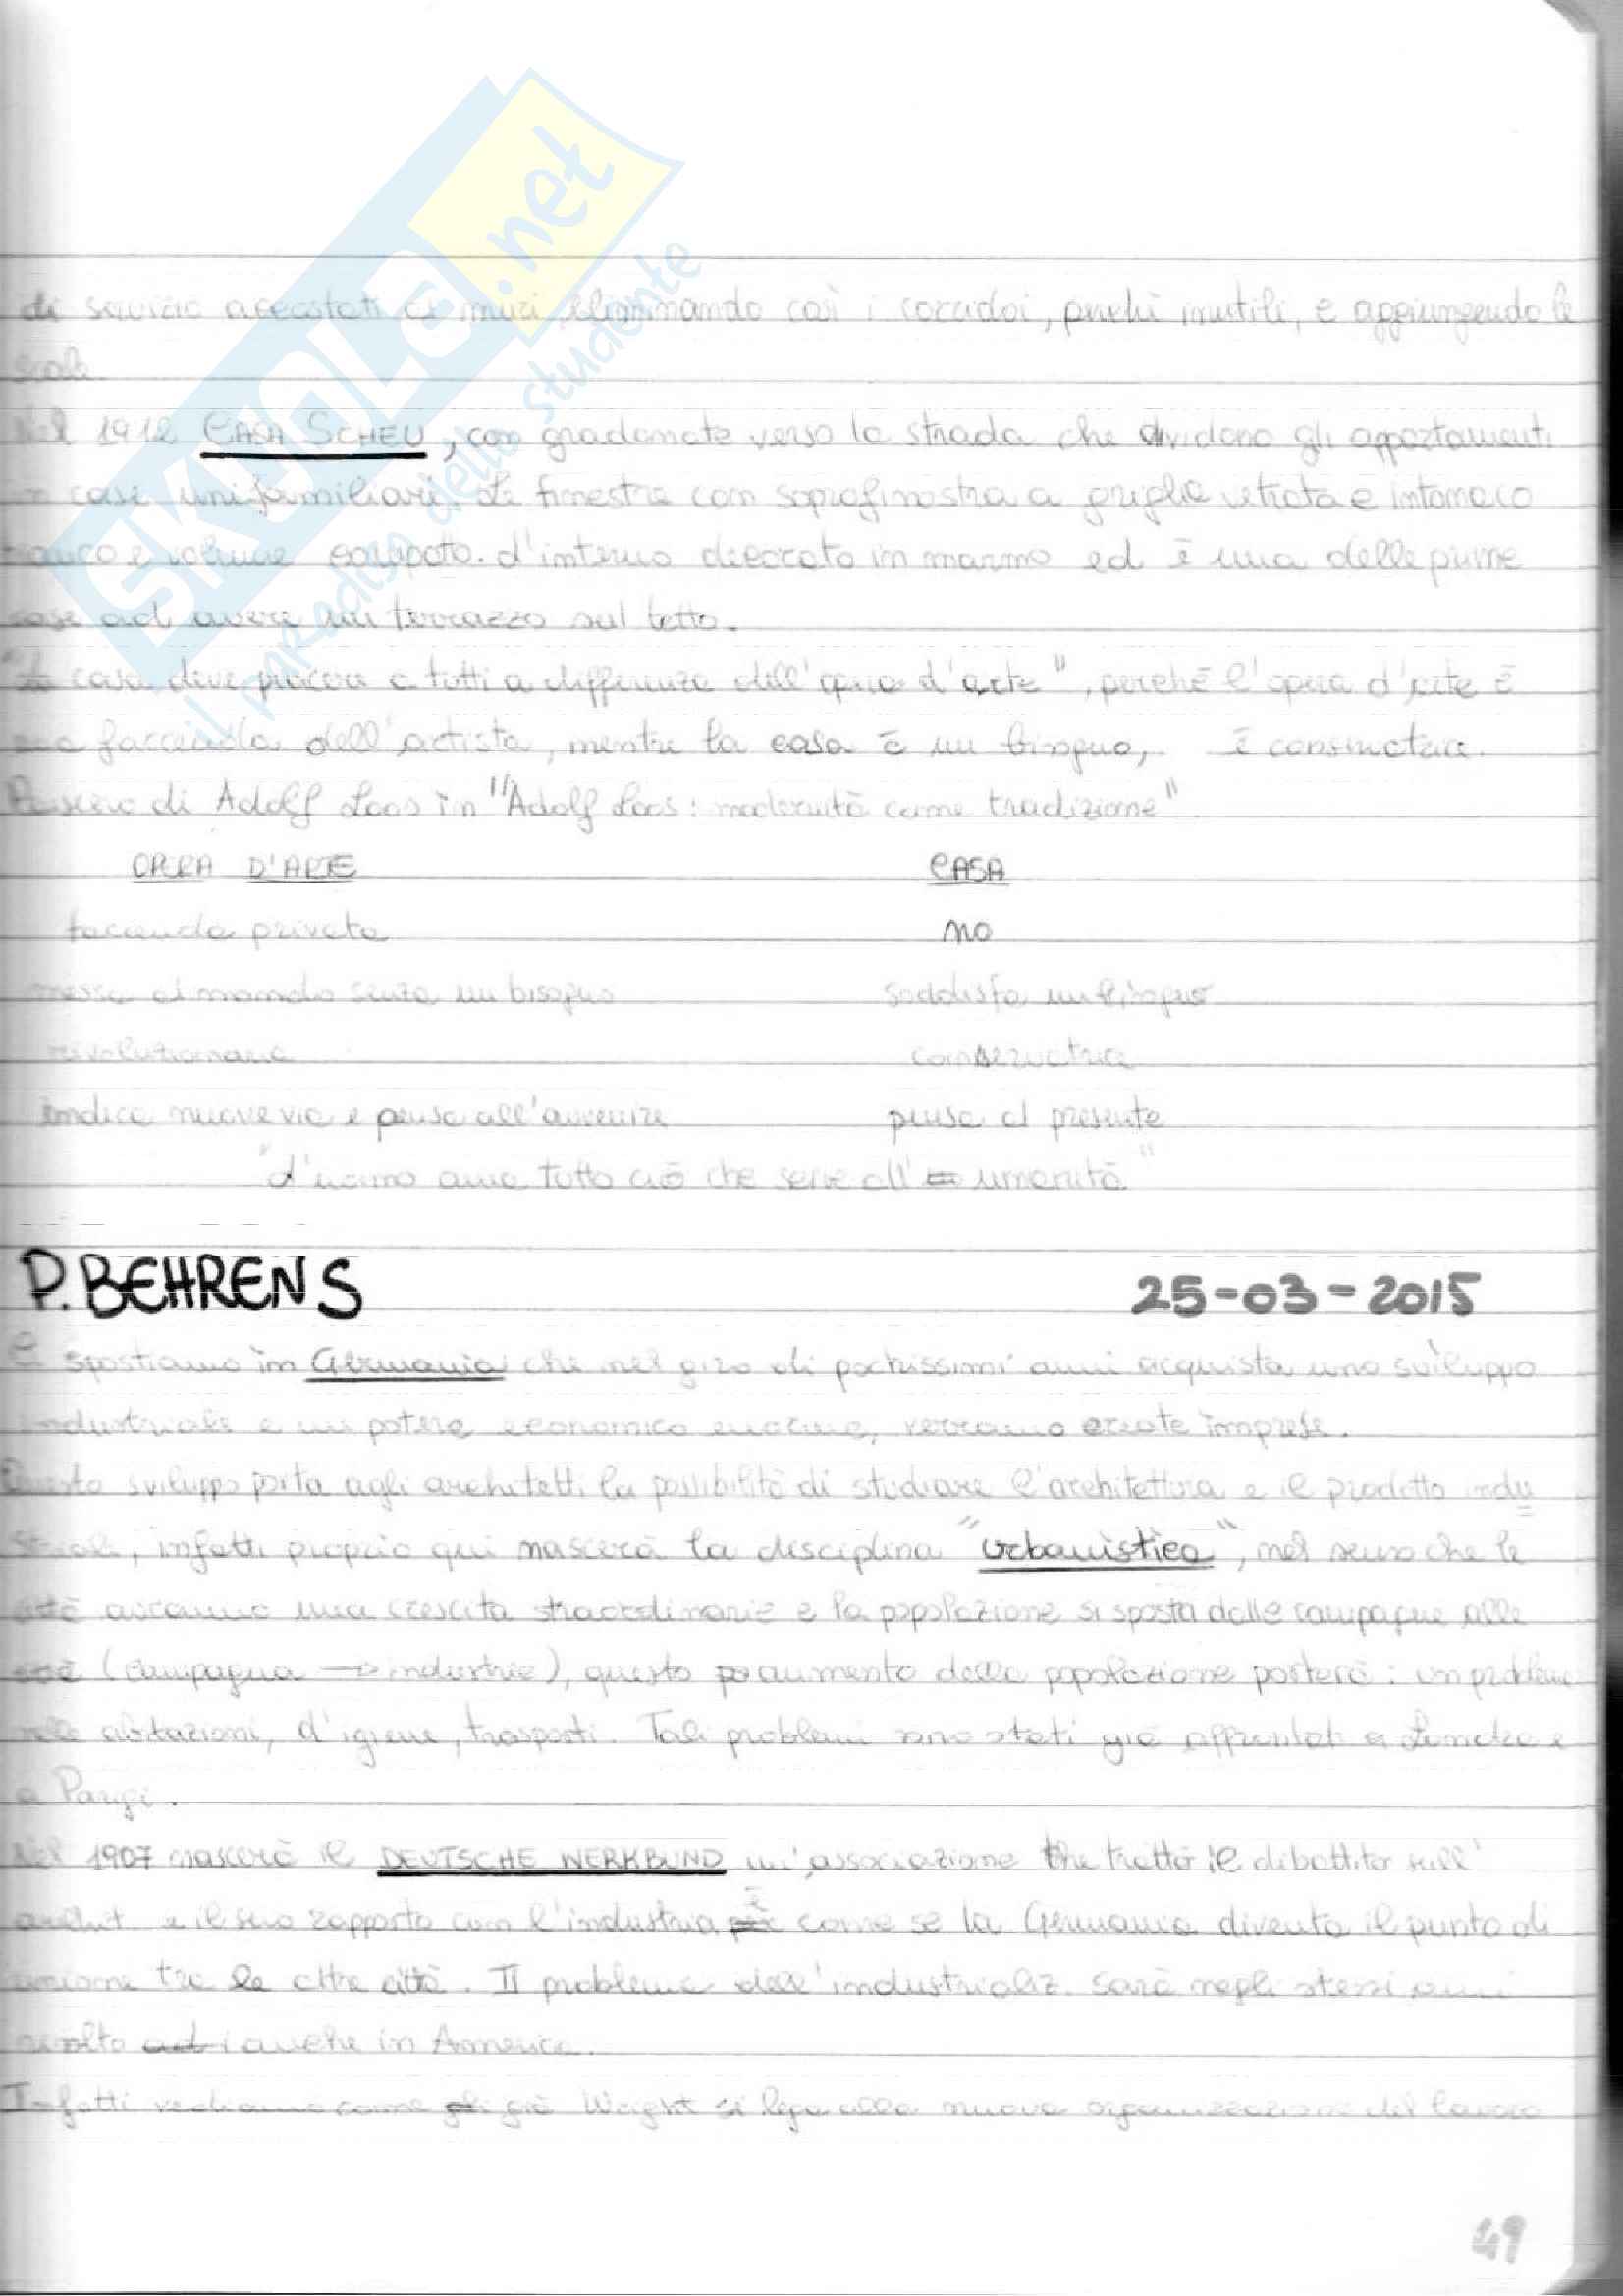 SKUOLA.net
il paradiso dello studente
di servizio accostati ai muri eliminando così i corridoi, perché inutili, e aggiungendo le
scale.
Nel 1912 CASA SCHEU, con gradonate verso la strada che dividono gli appartamenti
in case unifamiliari. Le finestre con soprafinestra a griglia vetrata e intonaco
bianco e volume compatto. L'interno decorato in marmo ed è una delle prime
case ad avere un terrazzo sul tetto.
"La casa deve piacere a tutti a differenza dell'opera d'arte", perché l'opera d'arte è
una faccenda dell'artista, mentre la casa è un bisogno, è conservatrice.
Pensiero di Adolf Loos in "Adolf Loos: modernità come tradizione"
OPERA D'ARTE CASA
faccenda privata no
messa al mondo senza un bisogno soddisfa un bisogno
rivoluzionaria conservatrice
indica nuove vie e pensa all'avvenire pensa al presente
"L'uomo ama tutto ciò che serve all' umanità"
P. BEHRENS 25-03-2015
Ci spostiamo in Germania che nel giro di pochissimi anni acquista uno sviluppo
industriale e un potere economico enorme, verranno create imprese.
Questo sviluppo porta agli architetti la possibilità di studiare l'architettura e il prodotto indu
striale, infatti proprio qui nascerà la disciplina "urbanistica", nel senso che le
città avranno una crescita straordinaria e la popolazione si sposta dalle campagne alle
città (campagna → industrie), questo aumento della popolazione porterà: un problema
nelle abitazioni, d'igiene, trasporti. Tali problemi sono stati già affrontati a Londra e
a Parigi.
Nel 1907 nascerà il DEUTSCHE WERKBUND un'associazione che tratta il dibattito sull'
archit. e il suo rapporto con l'industria, è come se la Germania diventa il punto di
unione tra le altre città. Il problema dell'industrializ. sarà negli stessi anni
risolto anche in America.
Infatti vediamo come già Wright si lega alla nuova organizzazione del lavoro
49